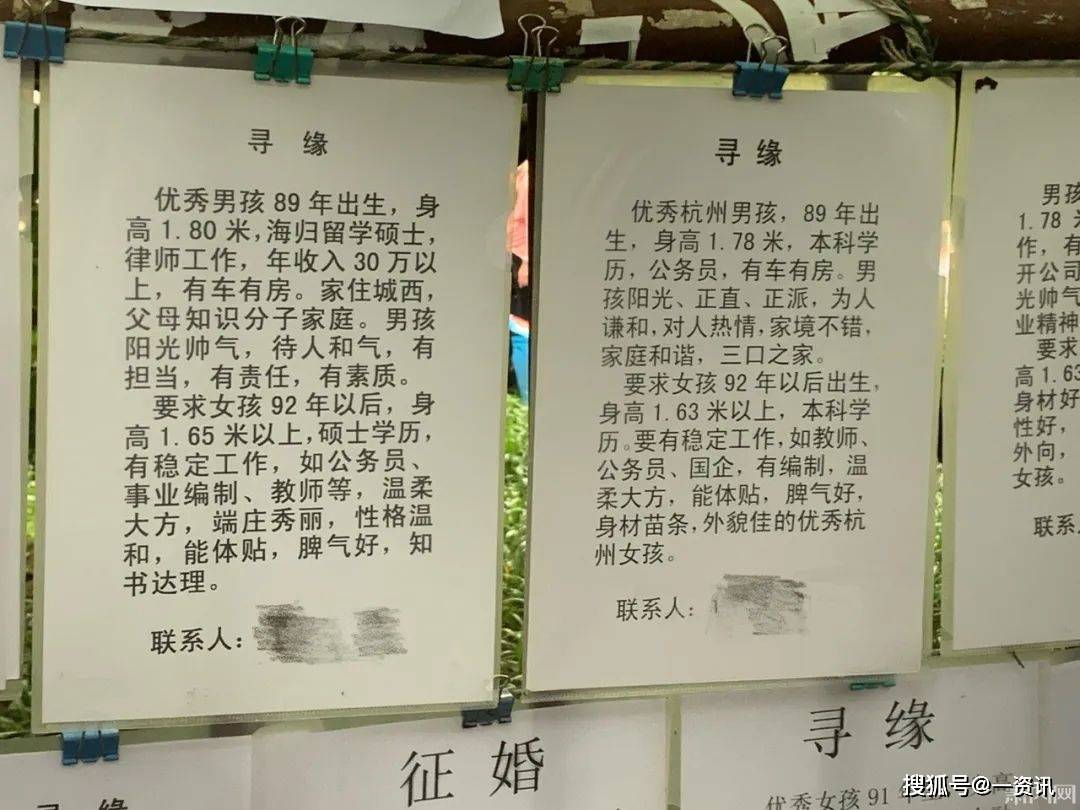 寻 缘
优秀男孩89年出生，身
高1.80米，海归留学硕士，
律师工作，年收入30万以
上，有车有房。家住城西，
父母知识分子家庭。男孩
阳光帅气，待人和气，有
担当，有责任，有素质。
要求女孩92年以后，身
高1.65米以上，硕士学历，
有稳定工作，如公务员、
事业编制、教师等，温柔
大方，端庄秀丽，性格温
和，能体贴，脾气好，知
书达理。
联系人：
寻 缘
优秀杭州男孩，89年出
生，身高1.78米，本科学
历，公务员，有车有房。男
孩阳光、正直、正派，为人
谦和，对人热情，家境不错，
家庭和谐，三口之家。
要求女孩92年以后出生，
身高1.63米以上，本科学
历。要有稳定工作，如教师、
公务员、国企，有编制，温
柔大方，能体贴，脾气好，
身材苗条，外貌佳的优秀杭
州女孩。
联系人：
男孩
1.78
作，有
开公司
光帅气
业精神
要求
高1.63
身材好
性好，
外向，
女孩。
联系
寻 缘
征 婚
寻 缘
优秀女孩91
高
搜狐号@一资讯